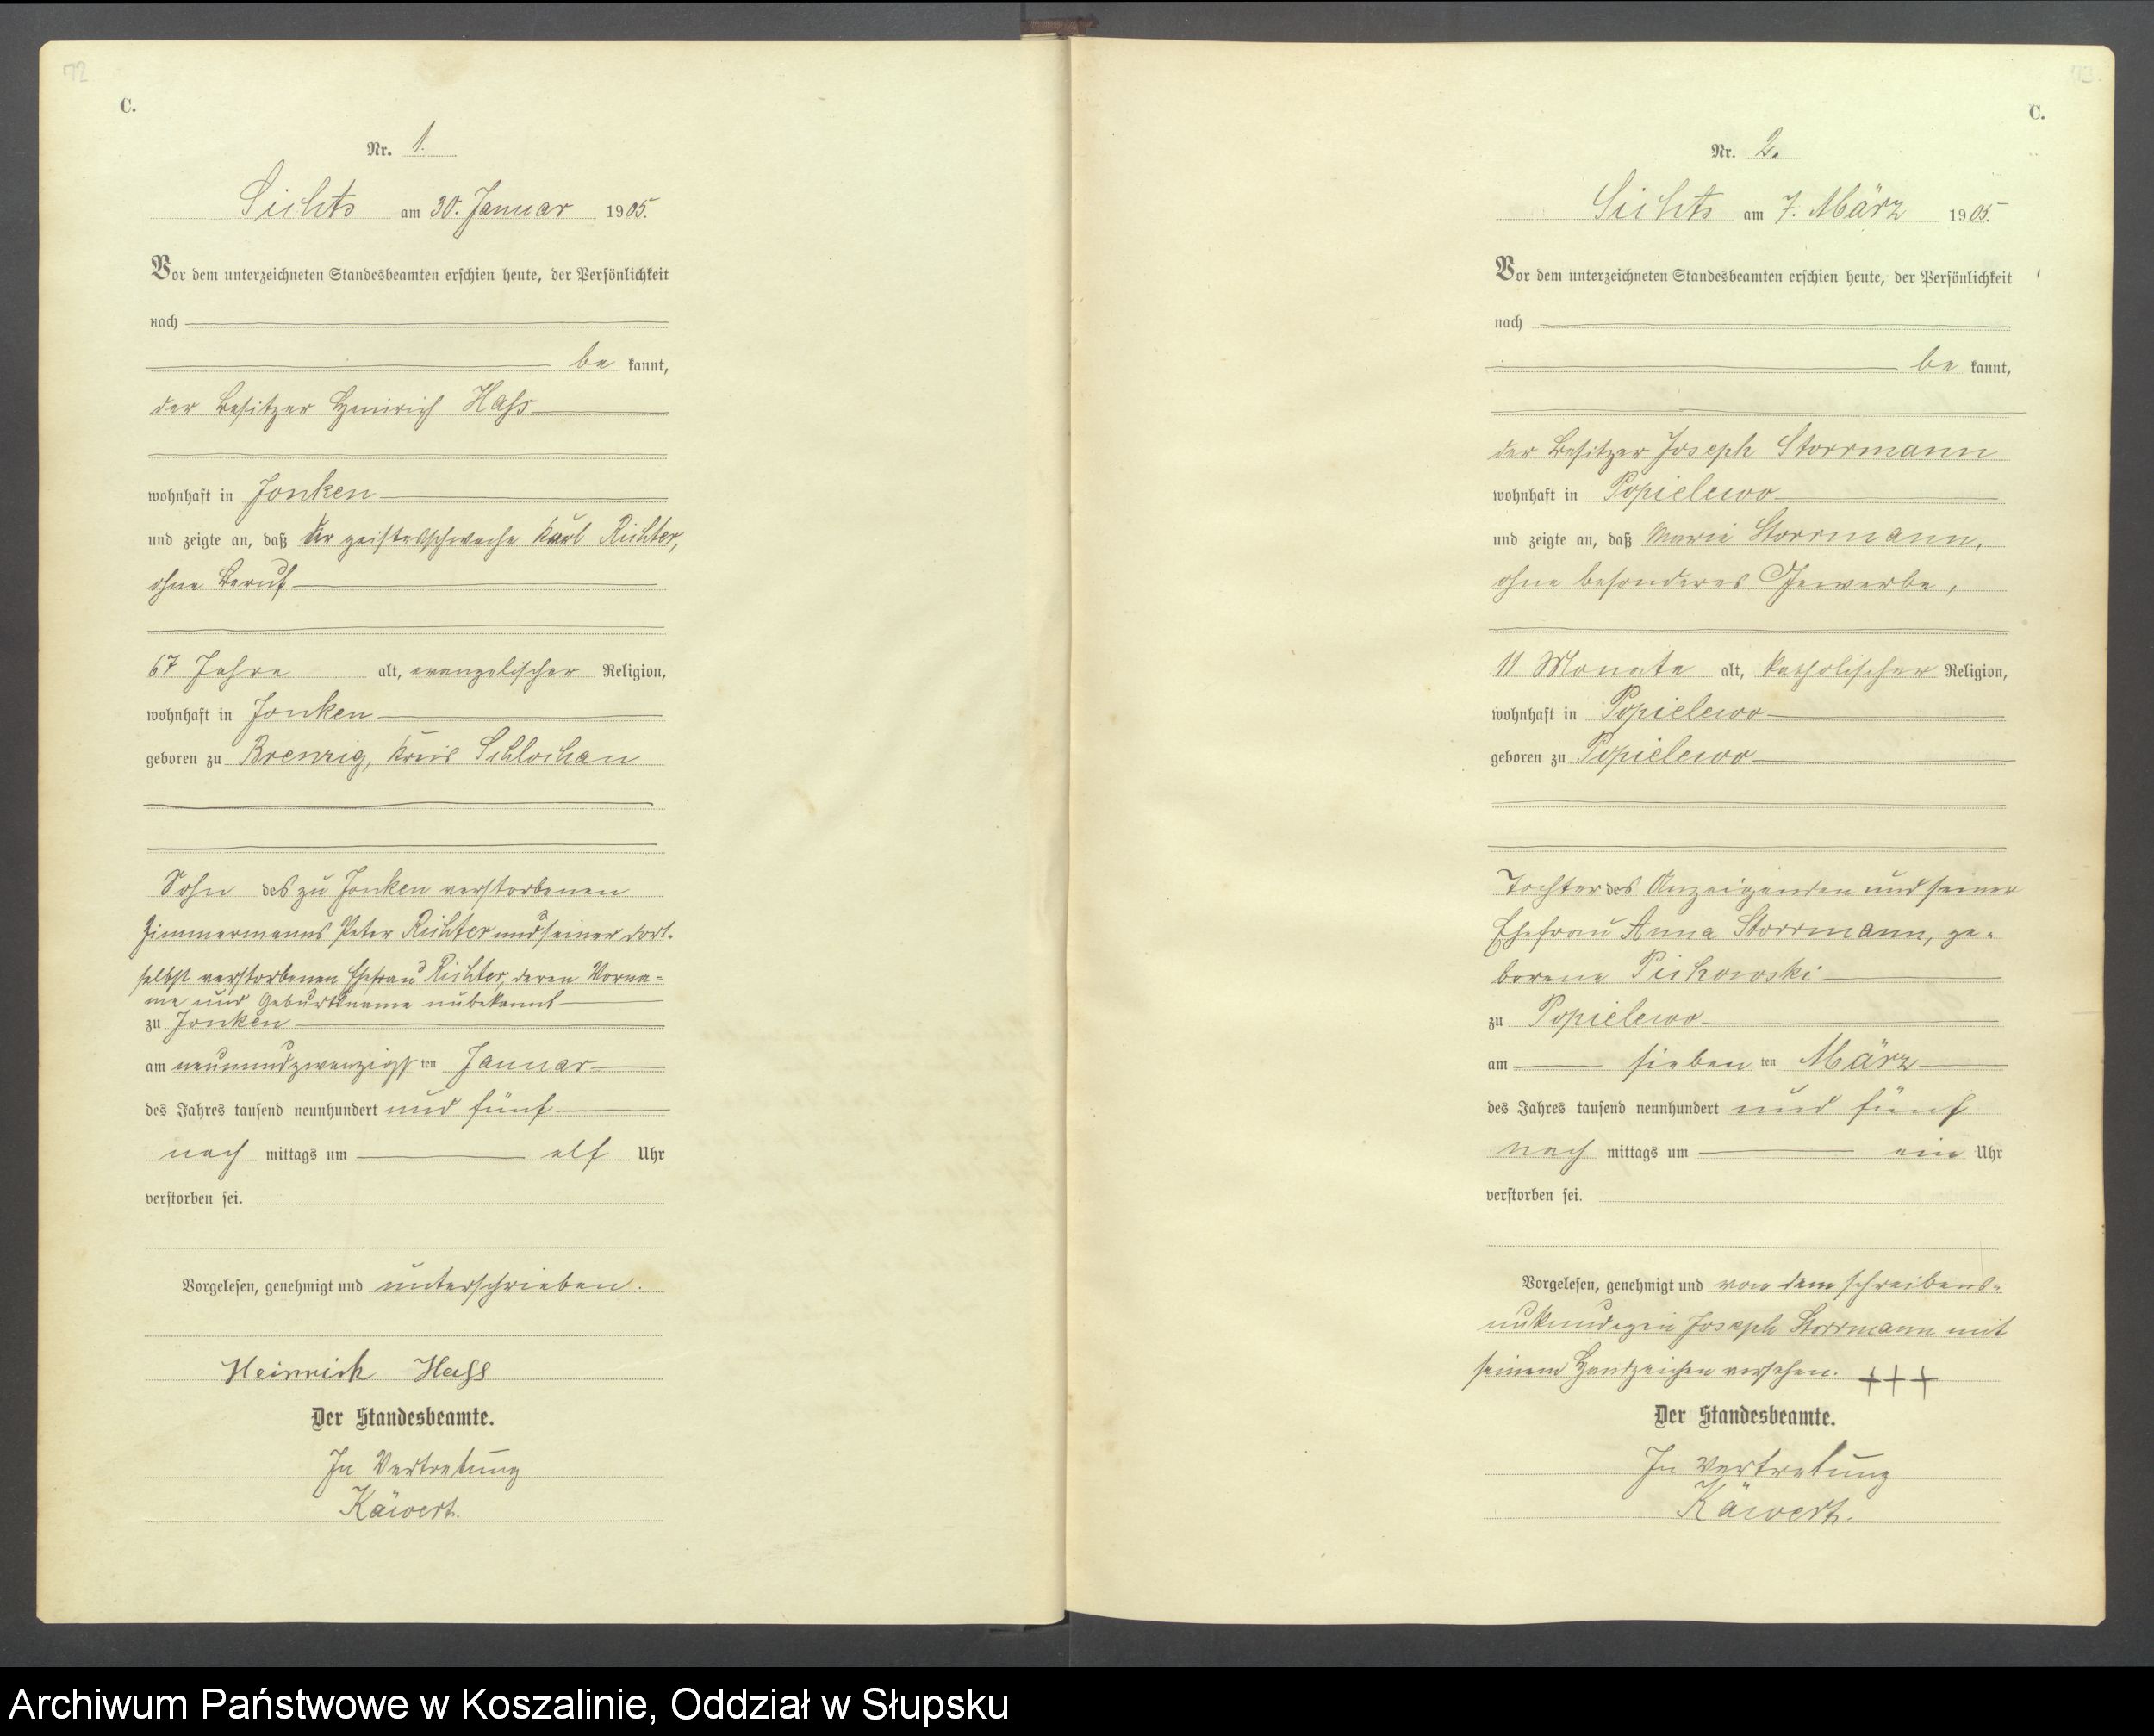 72
C.
Nr. 1.
Sichts am 30. Januar 1905.
Vor dem unterzeichneten Standesbeamten erschien heute, der Persönlichkeit
nach
be kannt,
der Besitzer Heinrich Hass
wohnhaft in Jonken
und zeigte an, daß der geistesschwache Karl Richter,
ohne Beruf
67 Jahre alt, evangelischer Religion,
wohnhaft in Jonken
geboren zu Brenzig, Kreis Schlochau
Sohn des zu Jonken verstorbenen
Zimmermanns Peter Richter und seiner dort-
selbst verstorbenen Ehefrau Richter, deren Vorna=
me und Geburtsname unbekannt
zu Jonken
am neunundzwanzigsten Januar
des Jahres tausend neunhundert und fünf
nach mittags um elf Uhr
verstorben sei.
Vorgelesen, genehmigt und unterschrieben.
Heinrich Hass
Der Standesbeamte.
In Vertretung
Käwert.
73.
C.
Nr. 2.
Sichts am 7. März 1905.
Vor dem unterzeichneten Standesbeamten erschien heute, der Persönlichkeit
nach
be kannt,
der Besitzer Joseph Storrmann
wohnhaft in Popielewo
und zeigte an, daß Marie Storrmann,
ohne besonderes Gewerbe,
11 Monate alt, katholischer Religion,
wohnhaft in Popielewo
geboren zu Popielewo
Tochter des Anzeigenden und seiner
Ehefrau Anna Storrmann, ge-
borene Pichowski
zu Popielewo
am siebenten März
des Jahres tausend neunhundert und fünf
nach mittags um ein Uhr
verstorben sei.
Vorgelesen, genehmigt und von dem schreibens-
unkundigen Joseph Storrmann mit
seinem Handzeichen versehen. +++
Der Standesbeamte.
In Vertretung
Käwert.
Archiwum Państwowe w Koszalinie, Oddział w Słupsku